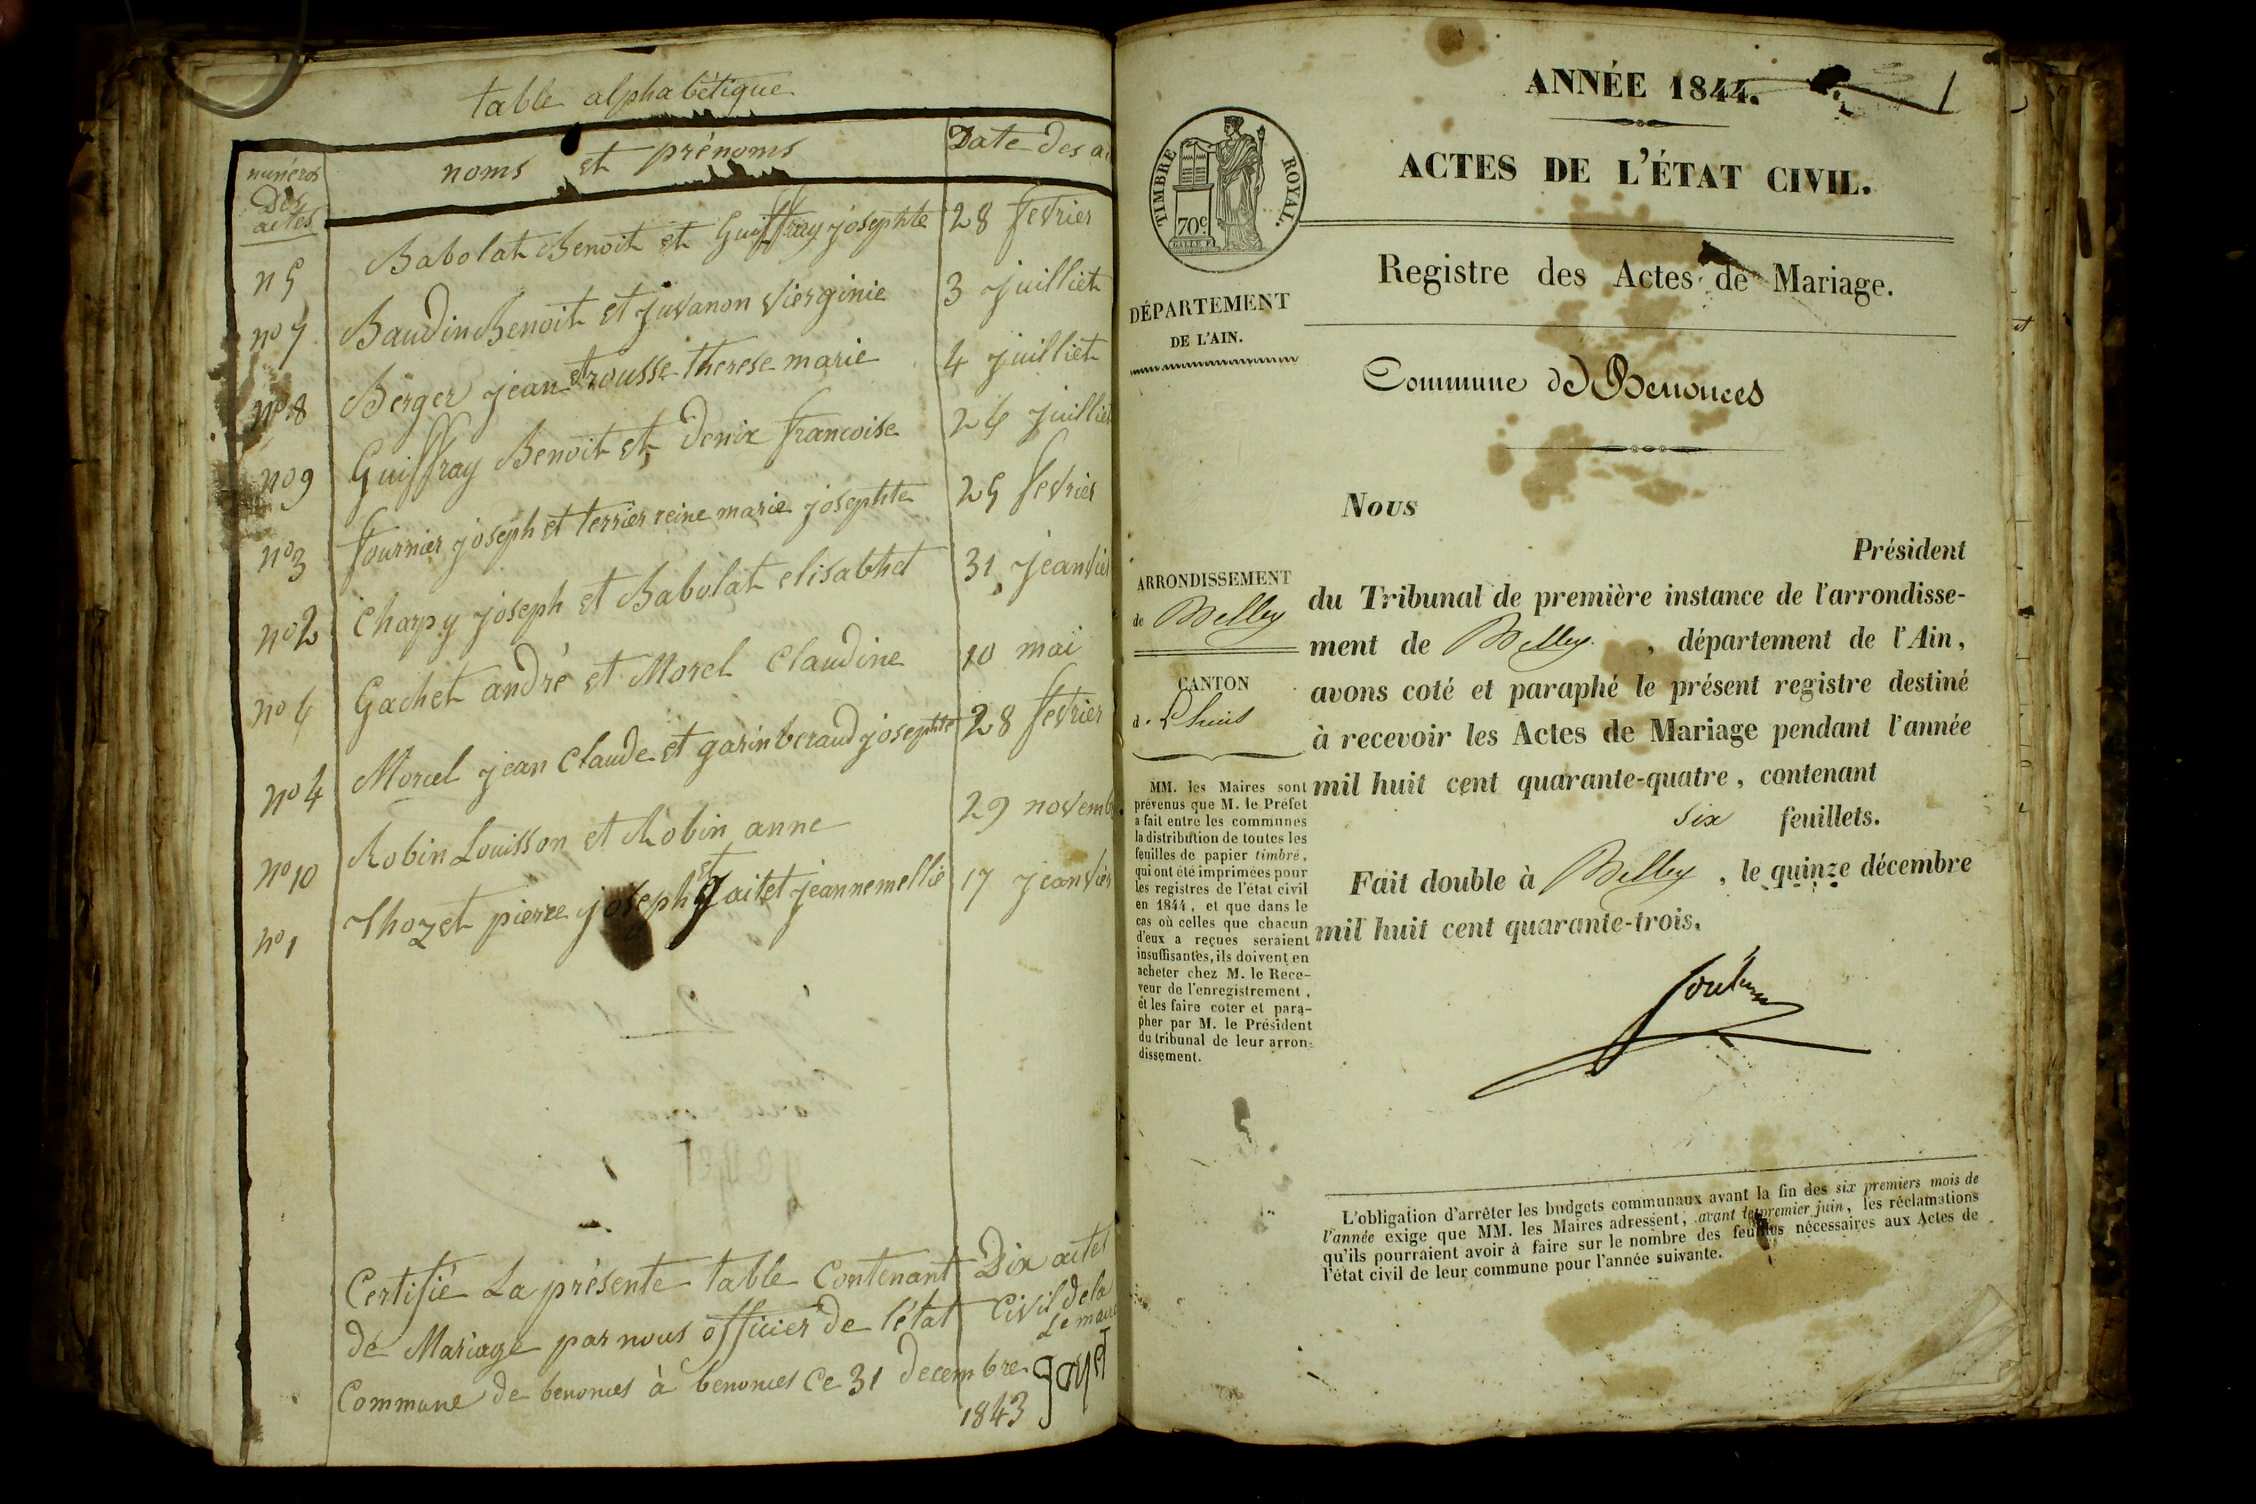 table alphabétique
numéros des actes
noms et prénoms
Date des a
n 5 Babolat Benoit et Guiffray josephte 28 fevrier
no 7 Baudin Benoit et juvanon vierginie 3 juilliet
no 8 Berger jean et rousse therese marie 4 juilliet
no 9 Guiffray Benoit et Denix francoise 26 juilliet
no 3 fournier joseph et terrier reine marie josephte 25 fevrier
no 2 Charpy joseph et Babolat elisabhet 31 jeanvier
no 6 Gachet andré et Morel Claudine 10 mai
no 4 Morel jean Claude et garinberaud josephte 28 fevrier
no 10 Robin Louisson et Robin anne 29 novemb
no 1 Thozet pierre joseph et jaitet jeannemellie 17 jeanvier
Certifié La présente table Contenant Dix actes
de Mariage par nous officier de l'état Civil de la
Commune de benonces à benonces Ce 31 decembre
1843
Le maire
gayet
ANNÉE 1844.
1
ACTES DE L'ÉTAT CIVIL.
TIMBRE ROYAL.
70c
Registre des Actes de Mariage.
DÉPARTEMENT
DE L'AIN.
Commune de Benonces
Nous
Président
du Tribunal de première instance de l'arrondisse-
ment de Belley, département de l'Ain,
avons coté et paraphé le présent registre destiné
à recevoir les Actes de Mariage pendant l'année
mil huit cent quarante-quatre, contenant
six feuillets.
Fait double à Belley, le quinze décembre
mil huit cent quarante-trois.
ARRONDISSEMENT
de Belley
CANTON
de Lhuis
MM. les Maires sont
prévenus que M. le Préfet
a fait entre les communes
la distribution de toutes les
feuilles de papier timbré,
qui ont été imprimées pour
les registres de l'état civil
en 1844, et que dans le
cas où celles que chacun
d'eux a reçues seraient
insuffisantes, ils doivent en
acheter chez M. le Rece-
veur de l'enregistrement,
et les faire coter et para-
pher par M. le Président
du tribunal de leur arron-
dissement.
L'obligation d'arrêter les budgets communaux avant la fin des six premiers mois de
l'année exige que MM. les Maires adressent, avant le premier juin, les réclamations
qu'ils pourraient avoir à faire sur le nombre des feuilles nécessaires aux Actes de
l'état civil de leur commune pour l'année suivante.